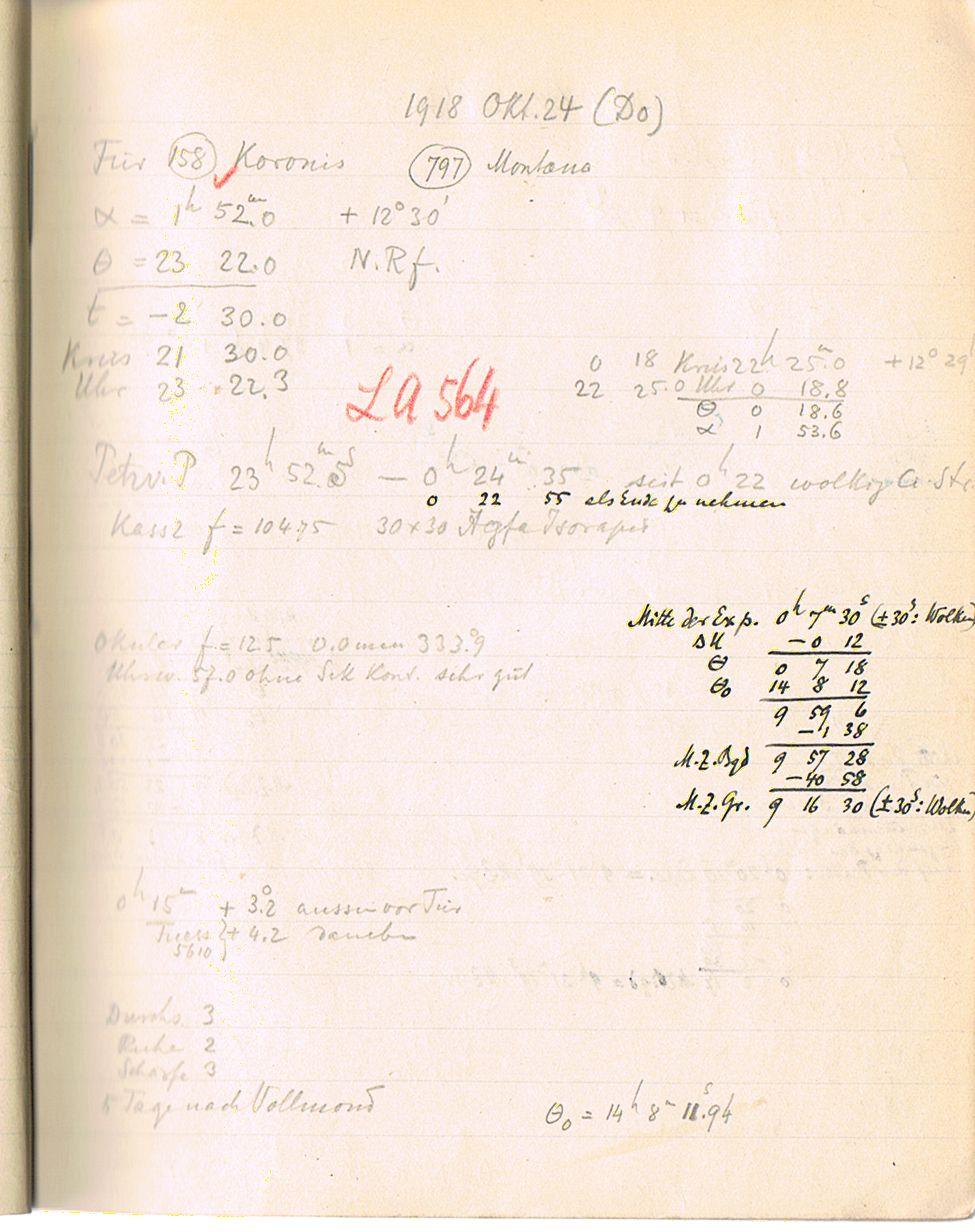 1918 Okt. 24 (Do)
Für 158 Koronis 797 Montana
α = 1h 52.m0 + 12° 30'
θ = 23 22.0 N.Rf.
t = -2 30.0
Kreis 21 30.0
Uhr 23 22.3
0 18 Kreis 22h 25.m0 + 12° 29'
22 25.0 Uhr 0 18.8
θ 0 18.6
α 1 53.6
LA 564
Petzv. P 23h 52.m — 0h 24m 35 seit 0h 22 wolkig
0 22 55 als Ende zu nehmen
Kass 2 f = 104.75 30x30 Agfa Isorapid
Mitte der Exp. 0h 7m 30s (±30s: Wolken
ΔU -0 12
θ 0 7 18
θ0 14 8 12
9 59 6
-1 38
M.Z.Bgd 9 57 28
-40 58
M.Z.Gr. 9 16 30 (±30s: Wolken
Okular f = 12.5 0.0 mm 333.°9
Uhrw. 57.0 ohne Sek Kont. sehr gut
0h 15m + 3.°2 aussen vor Tür
Fuess 5610 } + 4.2 daneben
Durchs 3
Ruhe 2
Schärfe 3
5 Tage nach Vollmond
θ0 = 14h 8m 11.s94